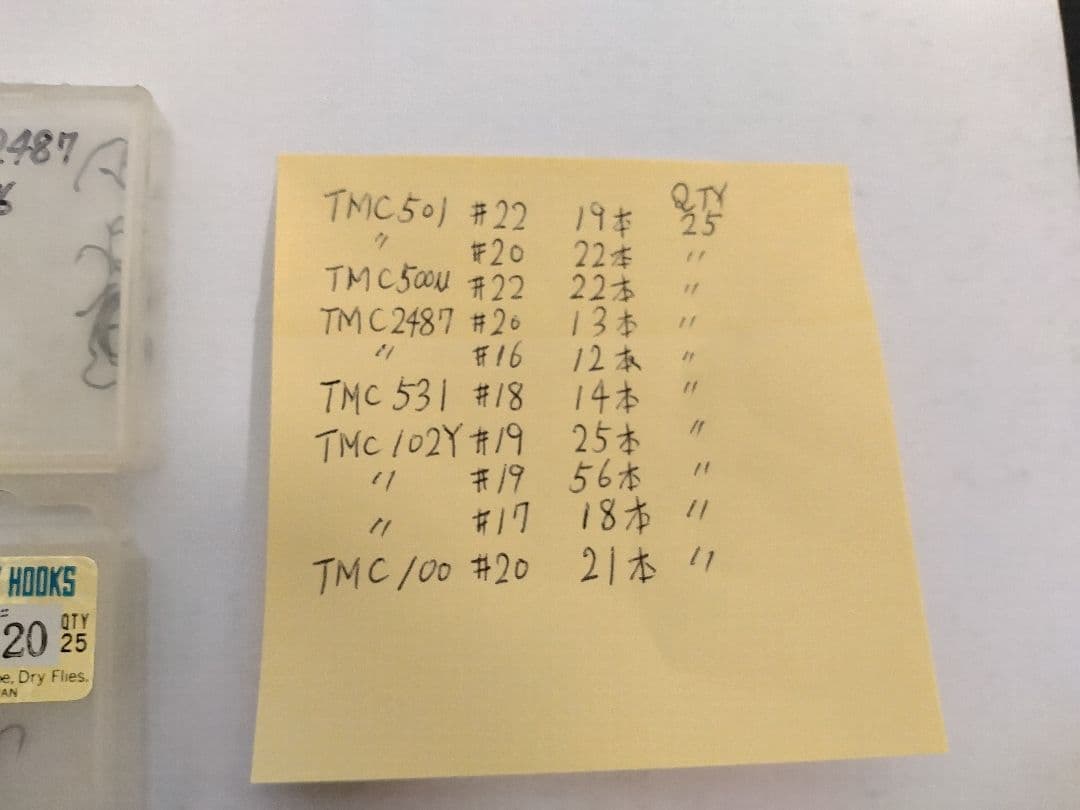 2487
QTY
TMC501 #22 19本 25
〃 #20 22本 〃
TMC500U #22 22本 〃
TMC2487 #20 13本 〃
〃 #16 12本 〃
TMC 531 #18 14本 〃
TMC 102Y #19 25本 〃
〃 #19 56本 〃
〃 #17 18本 〃
TMC 100 #20 21本 〃
HOOKS
20 QTY 25
Dry Flies.